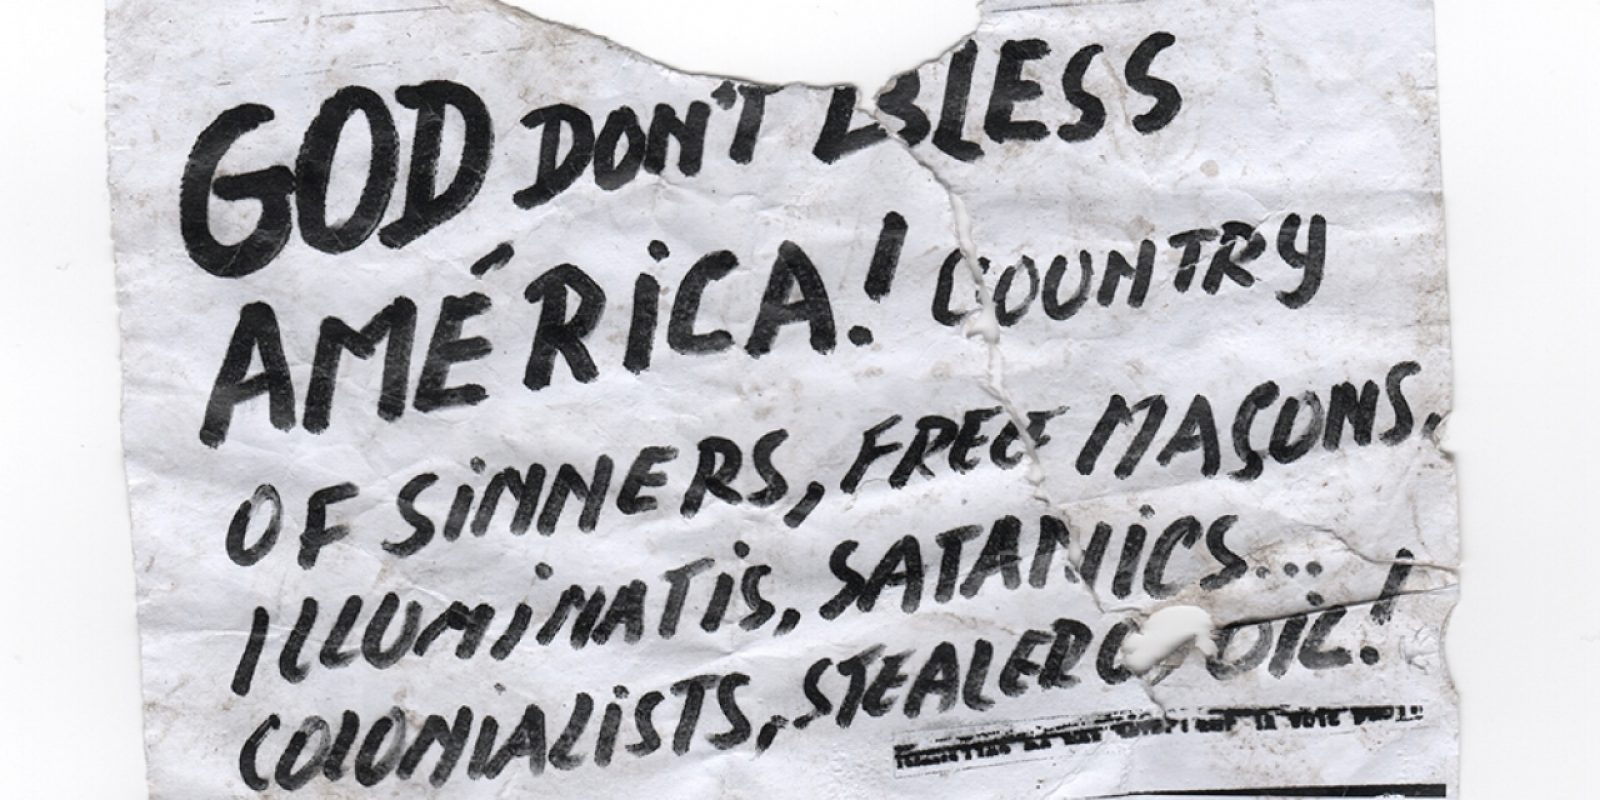 GOD DON'T BLESS
AMÉRiCA! COUNTRY
OF SiNNERS, FREE MASONS,
ILLUMiNATiS, SATANiCS...
COLONiALiSTS, STEALERS OiL!